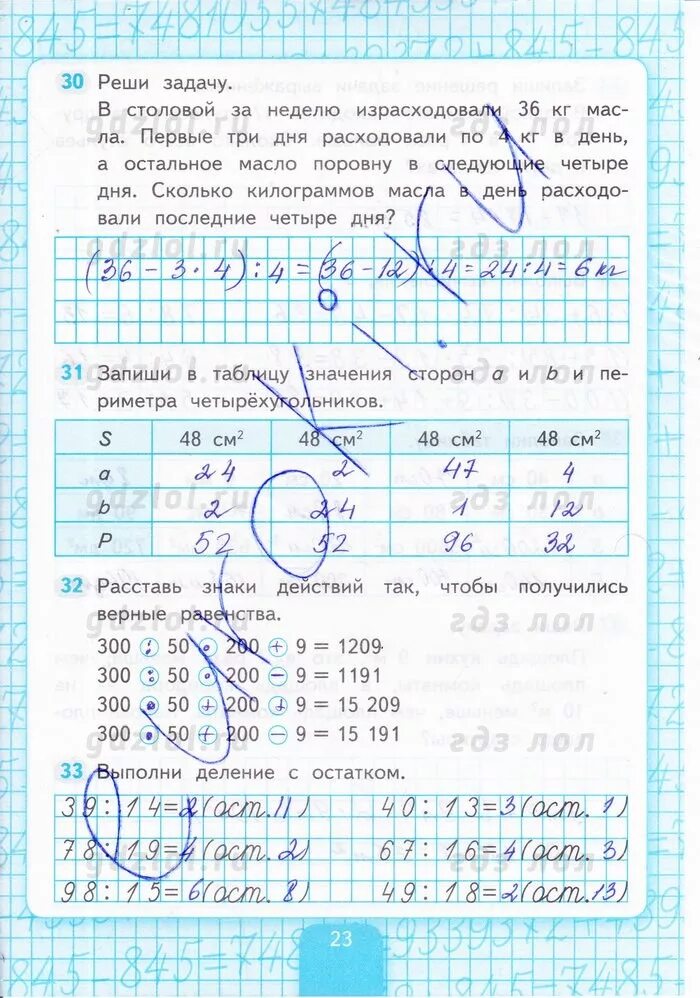 30 Реши задачу.
В столовой за неделю израсходовали 36 кг мас-
ла. Первые три дня расходовали по 4 кг в день,
а остальное масло поровну в следующие четыре
дня. Сколько килограммов масла в день расходо-
вали последние четыре дня?
(36 - 3 · 4) : 4 = (36 - 12) : 4 = 24 : 4 = 6 кг
31 Запиши в таблицу значения сторон a и b и пе-
риметра четырёхугольников.
S 48 см² 48 см² 48 см² 48 см²
a 24 2 47 4
b 2 24 1 12
P 52 52 96 32
32 Расставь знаки действий так, чтобы получились
верные равенства.
300 : 50 · 200 + 9 = 1209
300 : 50 · 200 - 9 = 1191
300 · 50 + 200 + 9 = 15 209
300 · 50 + 200 - 9 = 15 191
33 Выполни деление с остатком.
39 : 14 = 2 (ост. 11) 40 : 13 = 3 (ост. 1)
78 : 19 = 4 (ост. 2) 67 : 16 = 4 (ост. 3)
98 : 15 = 6 (ост. 8) 49 : 18 = 2 (ост. 13)
23
gdzlol.ru
гдз лол